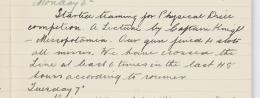 Monday 6th
Started training for Physical Drill
competion. A Lecture by Captain Knight
- Mesopotamia. Our gun fired 4 shots
all misses. We have crossed the
Line at least 6 times in the last 48
hours according to roumer
Tuesday 7th